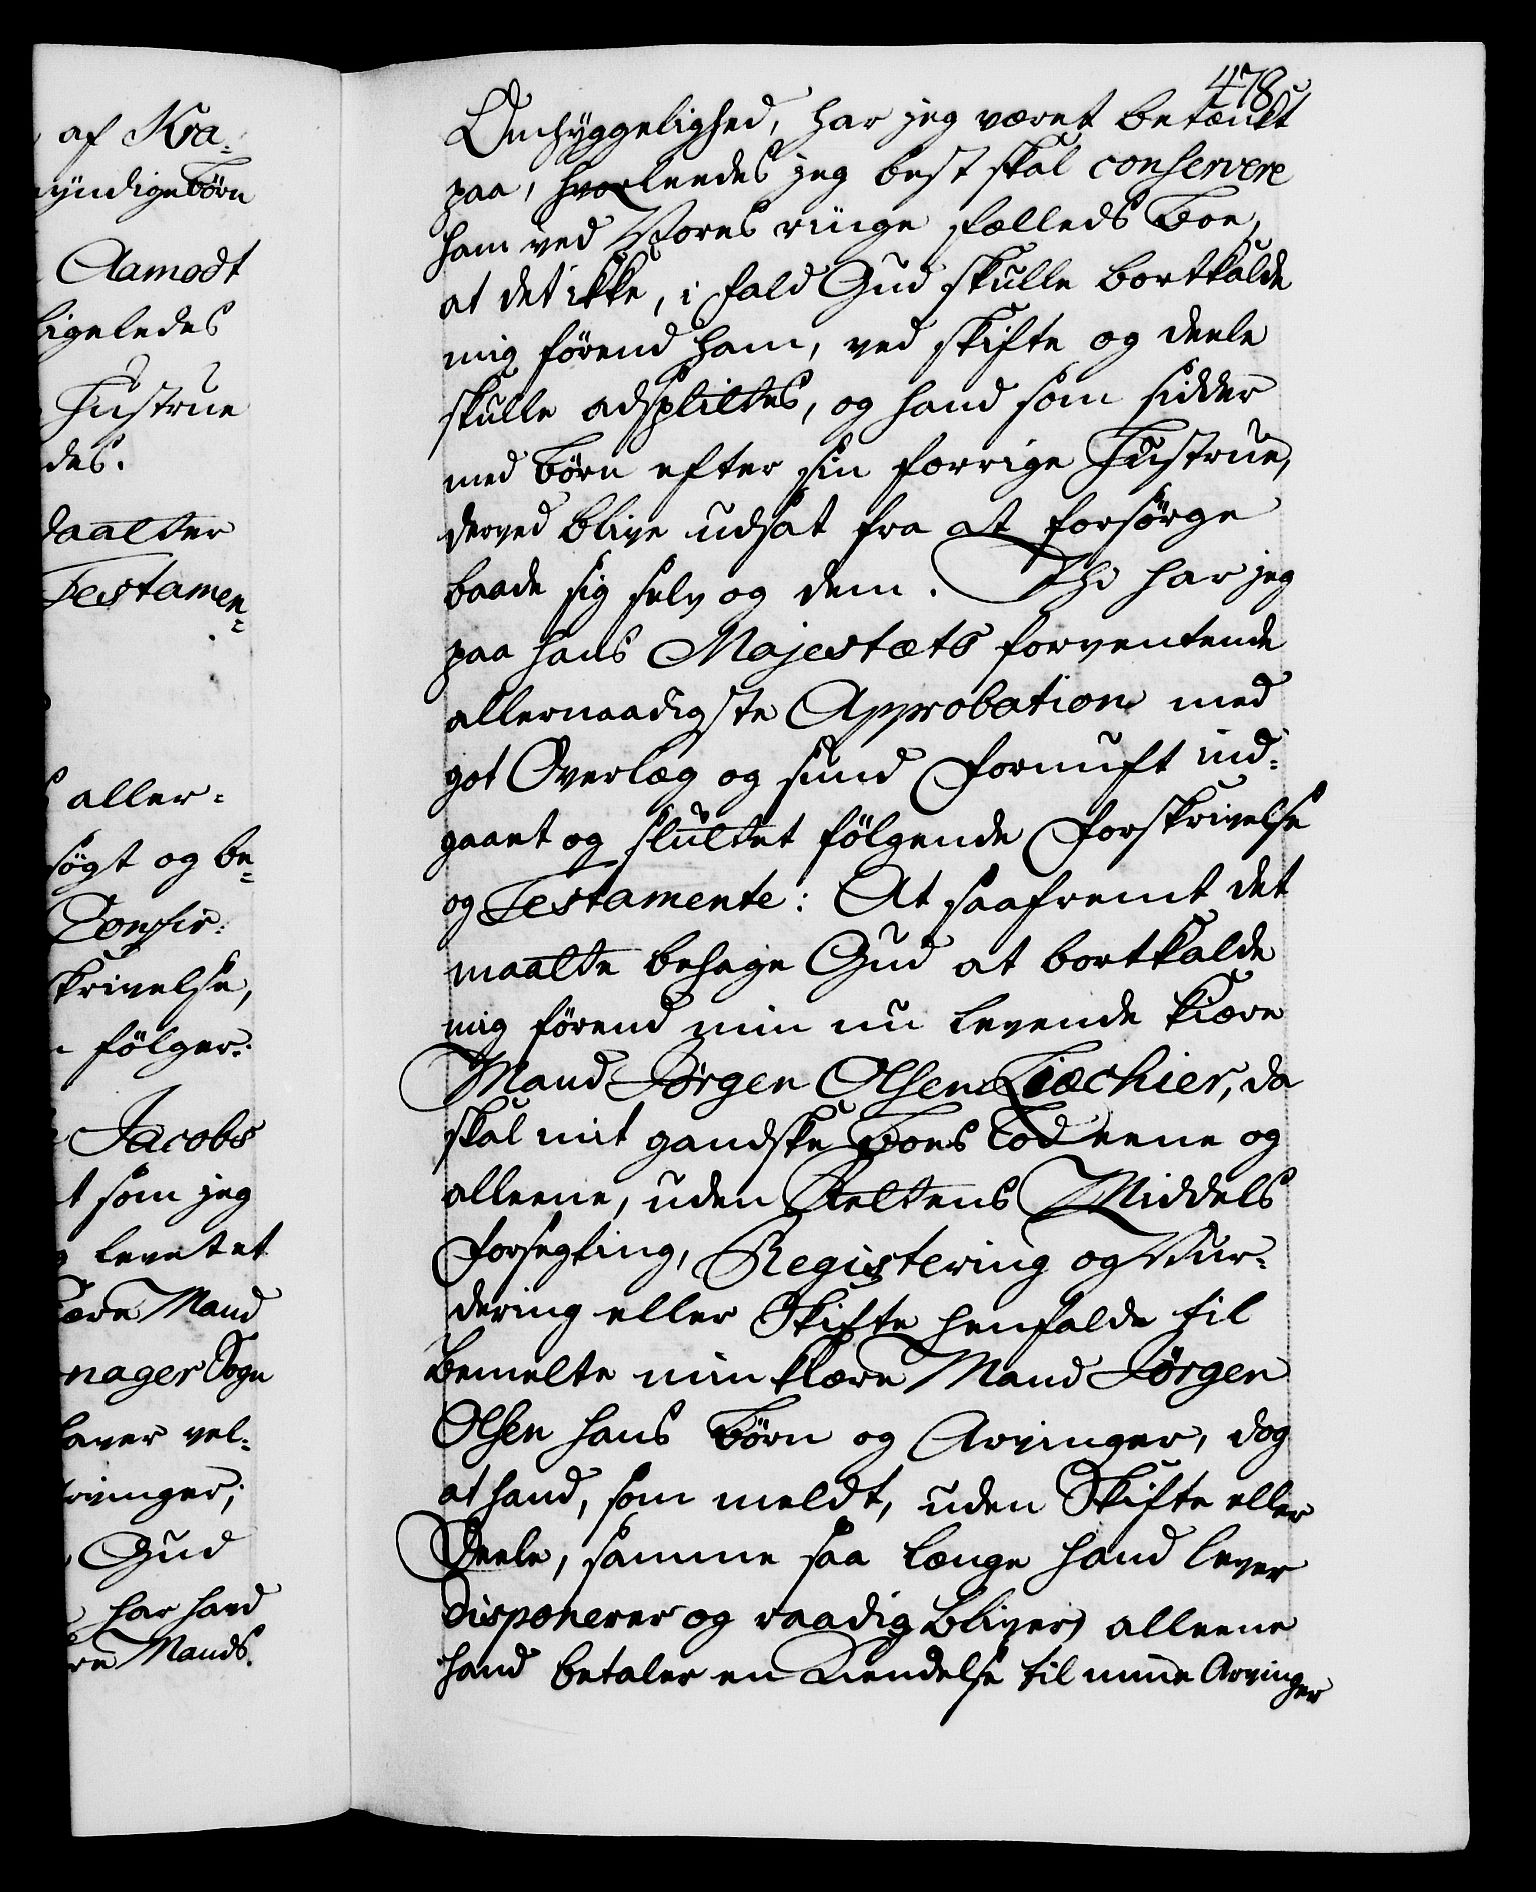 af Kra-
yndige börn
Aamodt
ligeledes
Hustrue
des.
Testamen-
aller-
søgt og be-
Confir-
skrivelse,
følger:
Jacobs
t som jeg
levetet
kiære Mand
nager Sogn
haver vel-
Arvinger;
Gud
har hand
re Mands.
478
Omhyggelighed, har jeg været betænckt
paa, hvorleedes jeg best skal conservere
ham ved Vores ringe fælleds Boe,
at det ikke, i fald Gud skulle bortkalde
mig førend ham, ved skifte og deele
skulle adsplittes, og hand som sidder
med børn efter sin forrige Hustrue,
derved blive udsat fra at forsørge
baade sig selv og dem. Thi har jeg
paa hans Majestæts forventende
allernaadigste Approbation med
got Overlæg og sund Fornuft ind-
gaaet og sluttet følgende Forskrivelse
og Testamente: At saafremt det
maatte behage Gud at bortkalde
mig førend min nu levende kiære
Mand Jørgen Olsen Liæchier, da
skal mit gandske Boes Lod eene og
alleene, uden Rettens Middels
Forsegling, Registering og Vur-
dering eller Skifte henfalde til
bemelte min kiære Mand Jørgen
Olsen hans Børn og Arvinger, dog
at hand, som meldt, uden Skifte eller
Deele, samme saa længe hand lever
disponerer og raadig bliver, alleene
hand betaler en Kiendelse til mine Arvinger